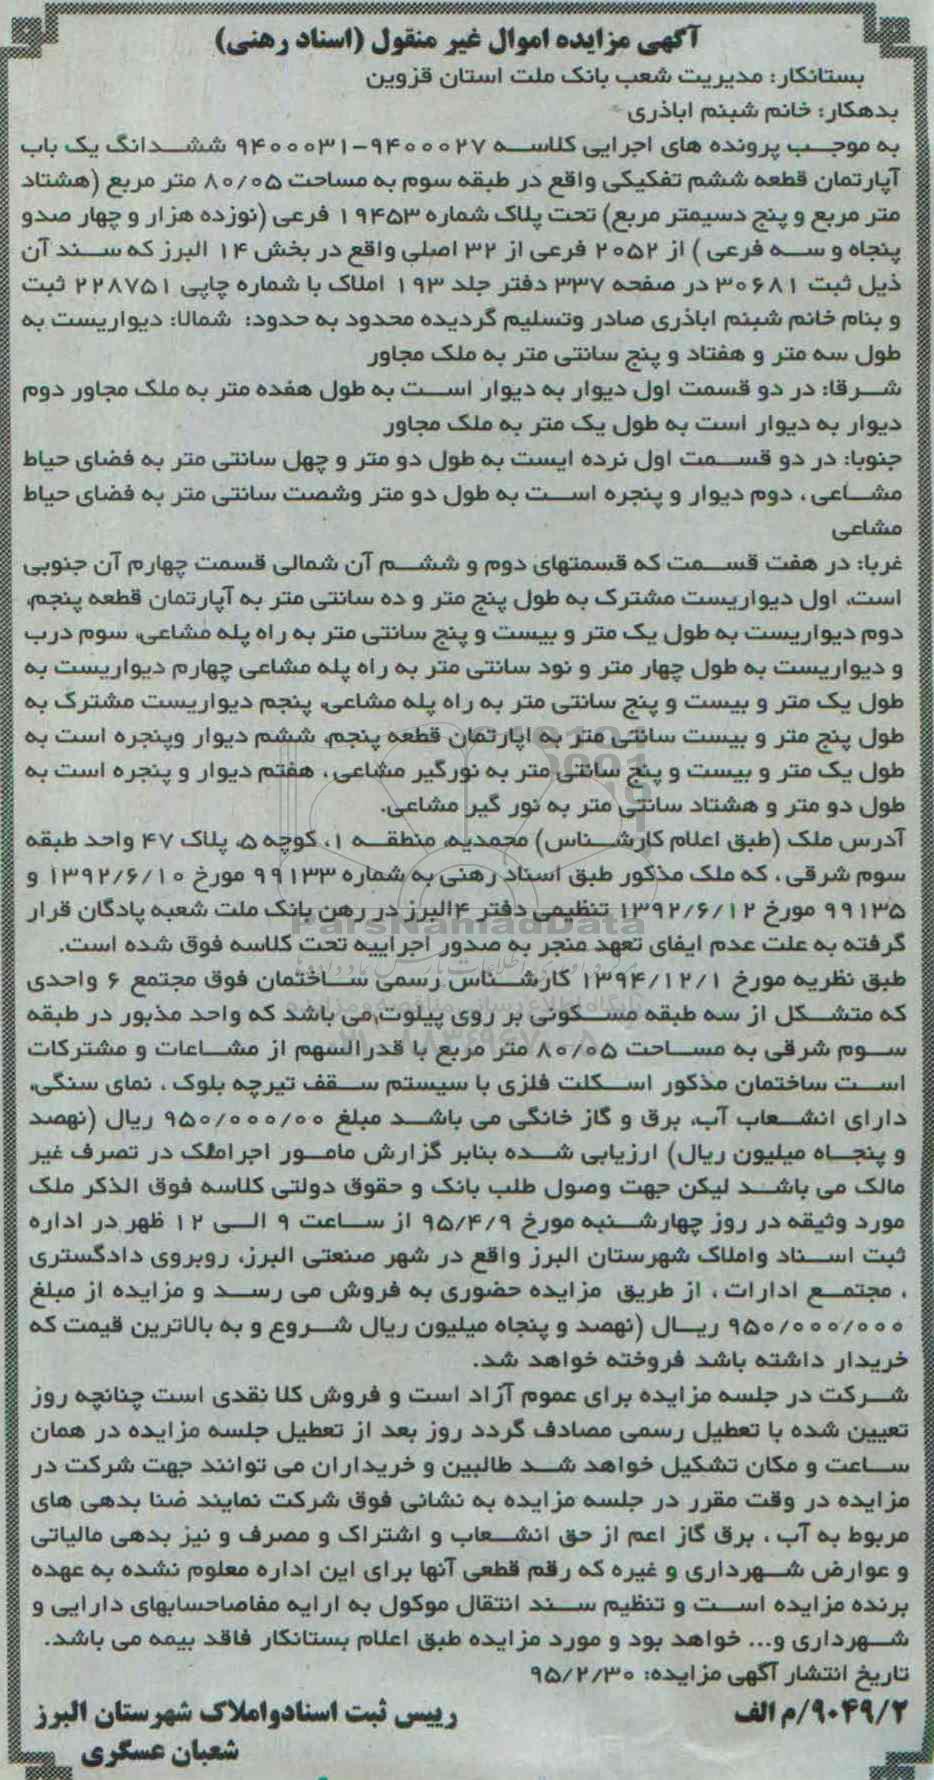 آگهی مزایده اموال غیر منقول (اسناد رهنی)
بستانکار: مدیریت شعب بانک ملت استان قزوین
بدهکار: خانم شبنم اباذری
به موجب پرونده های اجرایی کلاسه ۹۴۰۰۰۲۷-۹۴۰۰۰۳۱ ششدانگ یک باب
آپارتمان قطعه ششم تفکیکی واقع در طبقه سوم به مساحت ۸۰/۰۵ متر مربع (هشتاد
متر مربع و پنج دسیمتر مربع) تحت پلاک شماره ۱۹۴۵۳ فرعی (نوزده هزار و چهار صدو
پنجاه و سه فرعی ) از ۲۰۵۲ فرعی از ۳۲ اصلی واقع در بخش ۱۴ البرز که سند آن
ذیل ثبت ۳۰۶۸۱ در صفحه ۳۳۷ دفتر جلد ۱۹۳ املاک با شماره چاپی ۲۲۸۷۵۱ ثبت
و بنام خانم شبنم اباذری صادر وتسلیم گردیده محدود به حدود: شمالا: دیواریست به
طول سه متر و هفتاد و پنج سانتی متر به ملک مجاور
شرقا: در دو قسمت اول دیوار به دیوار است به طول هفده متر به ملک مجاور دوم
دیوار به دیوار است به طول یک متر به ملک مجاور
جنوبا: در دو قسمت اول نرده ایست به طول دو متر و چهل سانتی متر به فضای حیاط
مشاعی ، دوم دیوار و پنجره است به طول دو متر وشصت سانتی متر به فضای حیاط
مشاعی
غربا: در هفت قسمت که قسمتهای دوم و ششم آن شمالی قسمت چهارم آن جنوبی
است، اول دیواریست مشترک به طول پنج متر و ده سانتی متر به آپارتمان قطعه پنجم،
دوم دیواریست به طول یک متر و بیست و پنج سانتی متر به راه پله مشاعی، سوم درب
و دیواریست به طول چهار متر و نود سانتی متر به راه پله مشاعی چهارم دیواریست به
طول یک متر و بیست و پنج سانتی متر به راه پله مشاعی، پنجم دیواریست مشترک به
طول پنج متر و بیست سانتی متر به اپارتمان قطعه پنجم، ششم دیوار وپنجره است به
طول یک متر و بیست و پنج سانتی متر به نورگیر مشاعی ، هفتم دیوار و پنجره است به
طول دو متر و هشتاد سانتی متر به نور گیر مشاعی.
آدرس ملک (طبق اعلام کارشناس) محمدیه، منطقه ۱، کوچه ۵، پلاک ۴۷ واحد طبقه
سوم شرقی ، که ملک مذکور طبق اسناد رهنی به شماره ۹۹۱۳۳ مورخ ۱۳۹۲/۶/۱۰ و
۹۹۱۳۵ مورخ ۱۳۹۲/۶/۱۲ تنظیمی دفتر ۴البرز در رهن بانک ملت شعبه پادگان قرار
گرفته به علت عدم ایفای تعهد منجر به صدور اجراییه تحت کلاسه فوق شده است.
طبق نظریه مورخ ۱۳۹۴/۱۲/۱ کارشناس رسمی ساختمان فوق مجتمع ۶ واحدی
که متشکل از سه طبقه مسکونی بر روی پیلوت می باشد که واحد مذبور در طبقه
سوم شرقی به مساحت ۸۰/۰۵ متر مربع با قدرالسهم از مشاعات و مشترکات
است ساختمان مذکور اسکلت فلزی با سیستم سقف تیرچه بلوک ، نمای سنگی،
دارای انشعاب آب، برق و گاز خانگی می باشد مبلغ ۹۵۰/۰۰۰/۰۰ ریال (نهصد
و پنجاه میلیون ریال) ارزیابی شده بنابر گزارش مامور اجراملک در تصرف غیر
مالک می باشد لیکن جهت وصول طلب بانک و حقوق دولتی کلاسه فوق الذکر ملک
مورد وثیقه در روز چهارشنبه مورخ ۹۵/۴/۹ از ساعت ۹ الی ۱۲ ظهر در اداره
ثبت اسناد واملاک شهرستان البرز واقع در شهر صنعتی البرز، روبروی دادگستری
، مجتمع ادارات ، از طریق مزایده حضوری به فروش می رسد و مزایده از مبلغ
۹۵۰/۰۰۰/۰۰۰ ریال (نهصد و پنجاه میلیون ریال شروع و به بالاترین قیمت که
خریدار داشته باشد فروخته خواهد شد.
شرکت در جلسه مزایده برای عموم آزاد است و فروش کلا نقدی است چنانچه روز
تعیین شده با تعطیل رسمی مصادف گردد روز بعد از تعطیل جلسه مزایده در همان
ساعت و مکان تشکیل خواهد شد طالبین و خریداران می توانند جهت شرکت در
مزایده در وقت مقرر در جلسه مزایده به نشانی فوق شرکت نمایند ضنا بدهی های
مربوط به آب ، برق گاز اعم از حق انشعاب و اشتراک و مصرف و نیز بدهی مالیاتی
و عوارض شهرداری و غیره که رقم قطعی آنها برای این اداره معلوم نشده به عهده
برنده مزایده است و تنظیم سند انتقال موکول به ارایه مفاصاحسابهای دارایی و
شهرداری و... خواهد بود و مورد مزایده طبق اعلام بستانکار فاقد بیمه می باشد.
تاریخ انتشار آگهی مزایده: ۹۵/۲/۳۰
۹۰۴۹/۲/م الف
رییس ثبت اسنادواملاک شهرستان البرز
شعبان عسگری
ParsNamadData